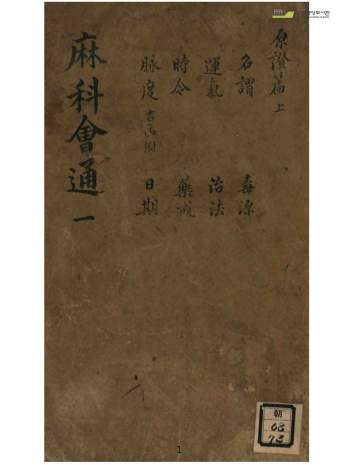 麻科會通 一
原證篇 上
名謂 毒源
運氣 治法
時令 藥戒
脉度 日期
朝
68
1